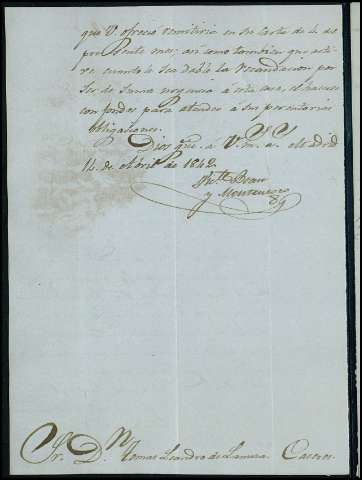 que V. ofreció remitiria en su carta de 4 de
presente mes; asi como tambien que acti-
ve cuanto le sea dable la recaudacion por
ser de suma urgencia á esta casa, el hacerse
con fondos para atender á sus perentorias
obligaciones.
Dios gue. á V. m. a. Madrid
14 de Abril de 1842.
y Montenegro
Sr. Dn. Tomas Leandro de Caceres.